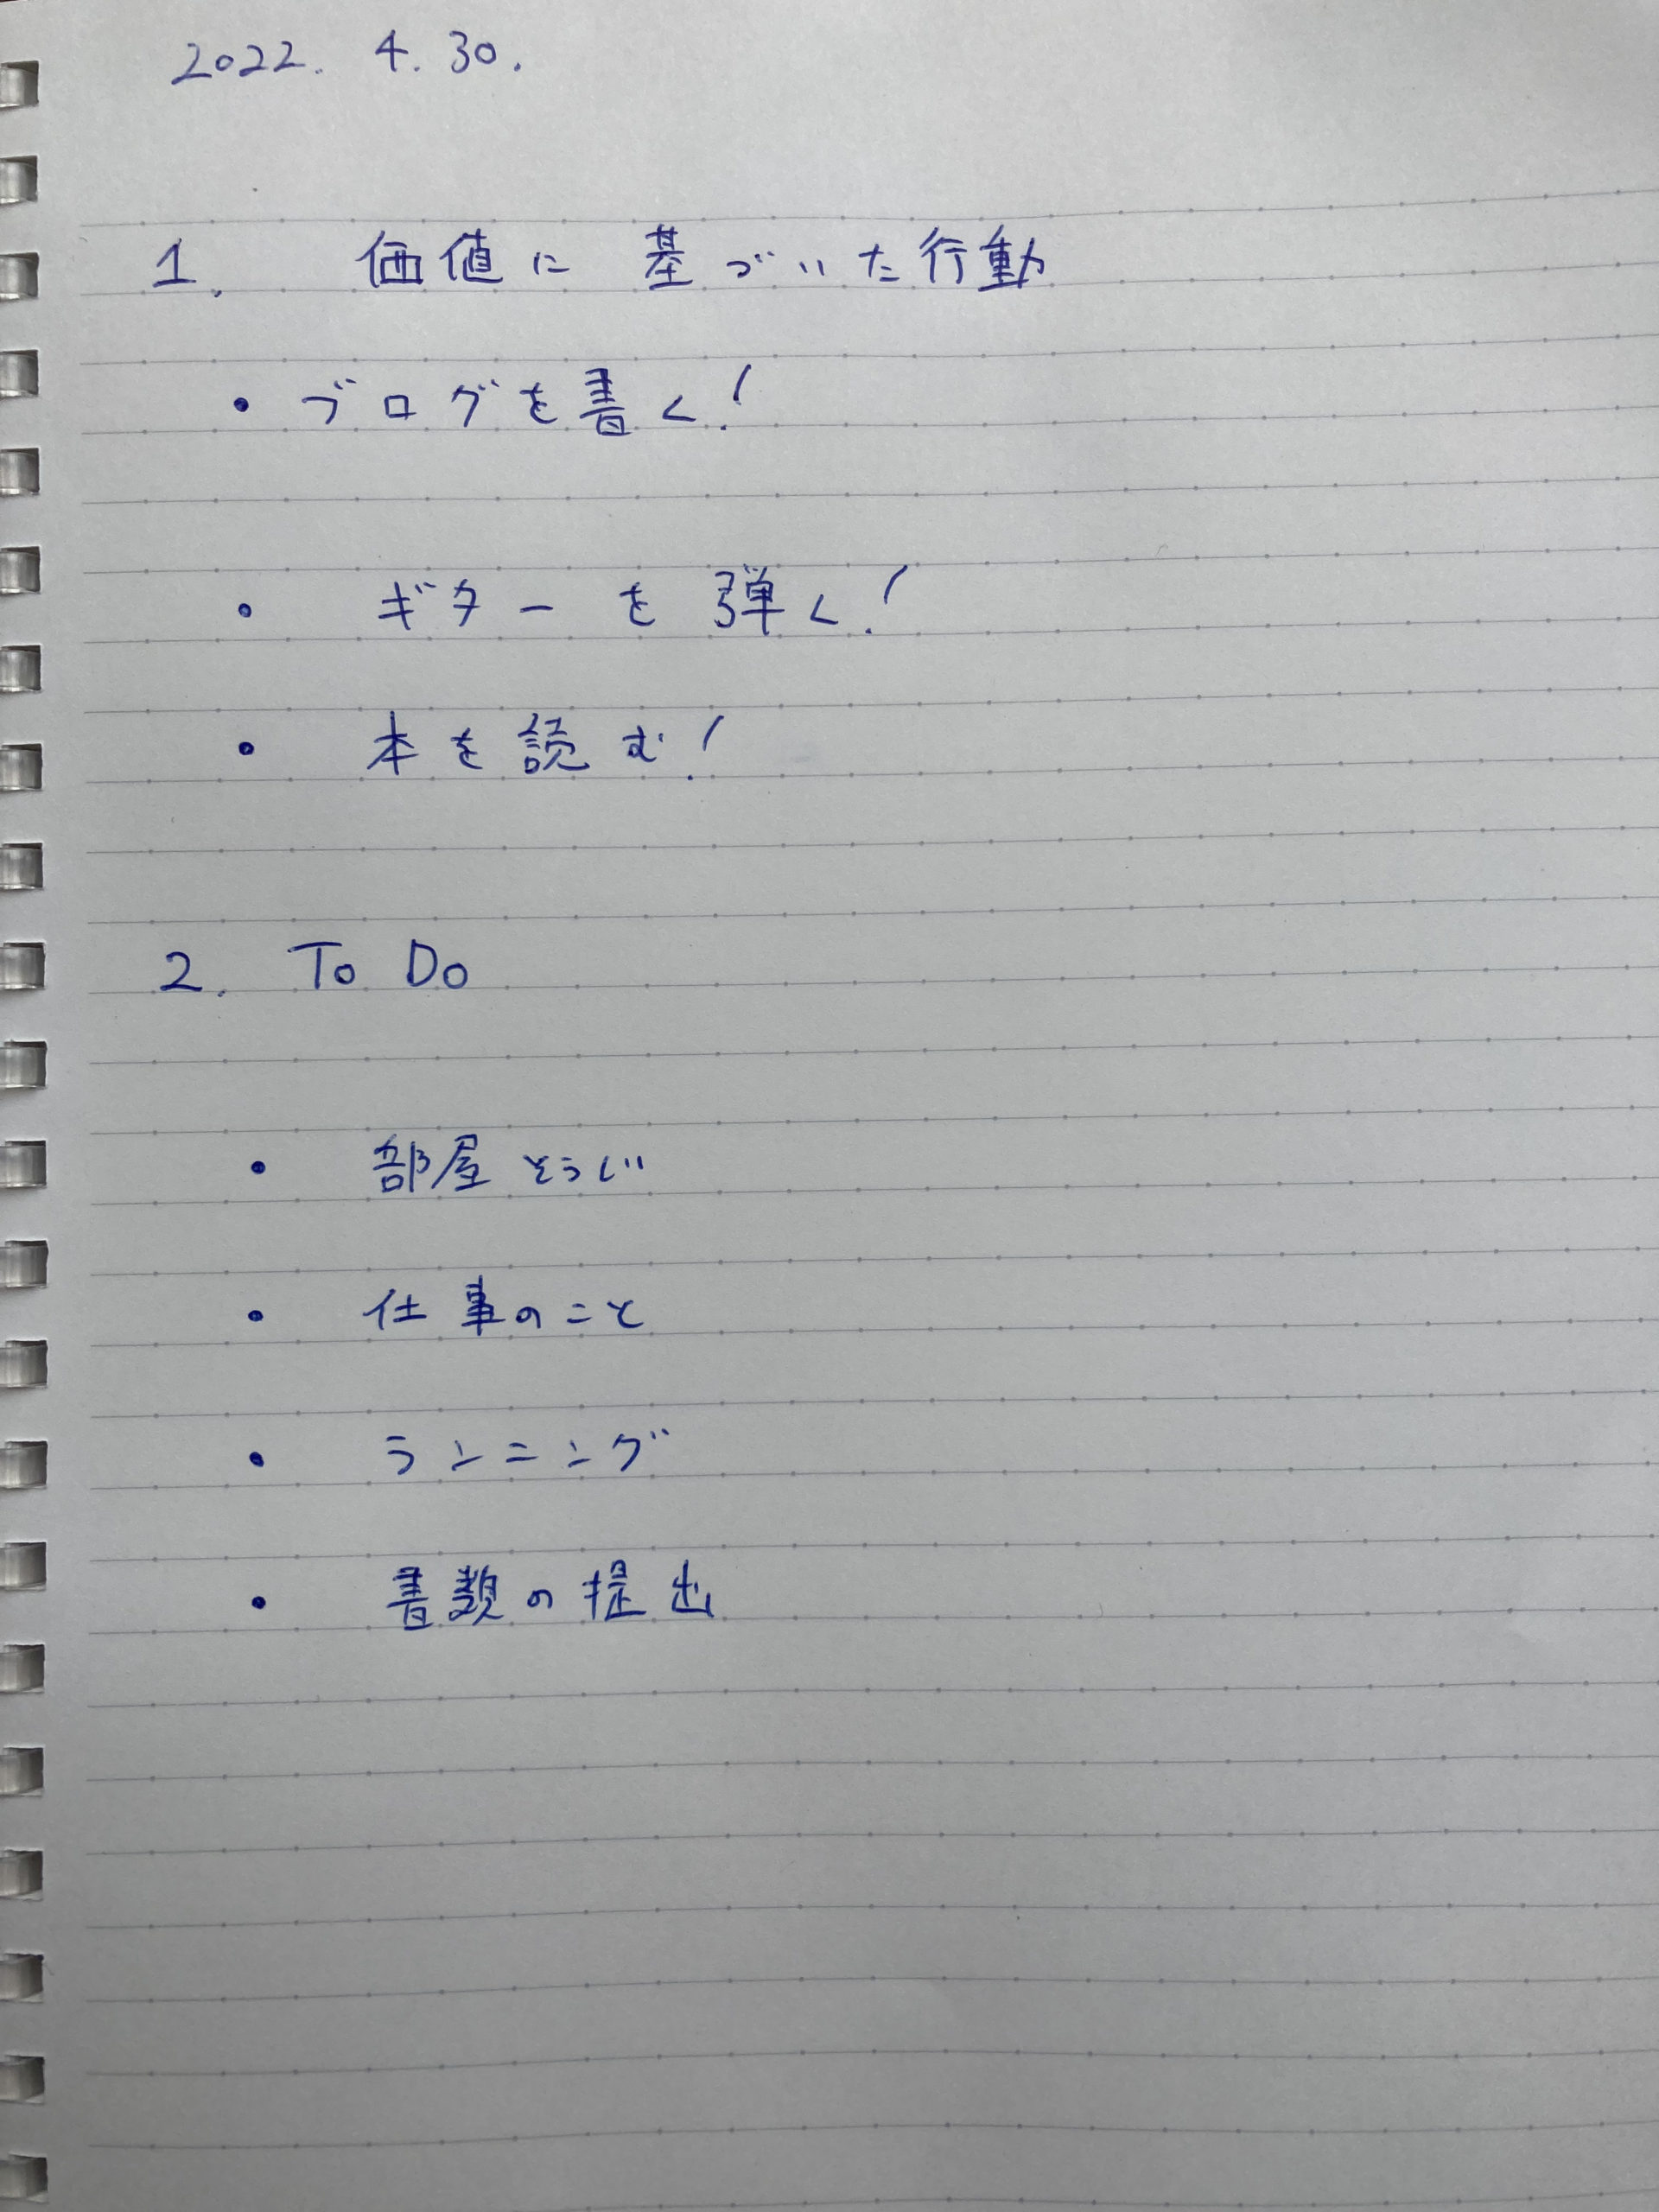 2022. 4. 30.
1. 価値に基づいた行動
・ブログを書く!
・ギターを弾く!
・本を読む!
2. To Do
・部屋そうじ
・仕事のこと
・ランニング
・書類の提出